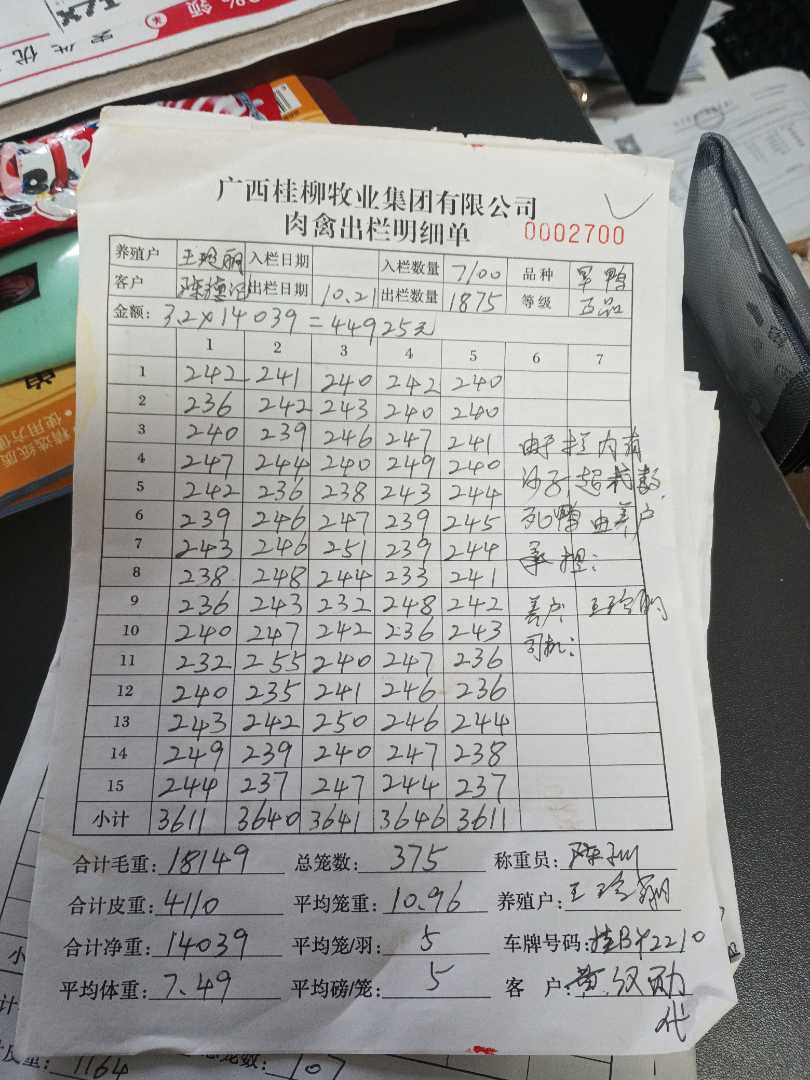 广西桂柳牧业集团有限公司
肉禽出栏明细单 0002700
养殖户 王玲丽 入栏日期 入栏数量 7100 品种 旱鸭
客户 出栏日期 10.21 出栏数量 1875 等级 正品
金额: 3.2×14039=44925元
1 2 3 4 5 6 7
1 242 241 240 242 240
2 236 242 243 240 240
3 240 239 246 247 241 由于栏内有
4 247 244 240 249 240 沙子,超载数
5 242 236 238 243 244
6 239 246 247 239 245 死鸭由养户
7 243 246 251 239 244 承担:
8 238 248 244 233 241
9 236 243 232 248 242 养户: 王玲丽
10 240 247 242 236 243 司机:
11 232 255 240 247 236
12 240 235 241 246 236
13 243 242 250 246 244
14 249 239 240 247 238
15 244 237 247 244 237
小计 3611 3640 3641 3646 3611
合计毛重: 18149 总笼数: 375 称重员:
合计皮重: 4110 平均笼重: 10.96 养殖户: 王玲丽
合计净重: 14039 平均笼/羽: 5 车牌号码: 桂BY2210
平均体重: 7.49 平均磅/笼: 5 客户: 黄汉勋
代
1164
107
精选纸质
使用方便